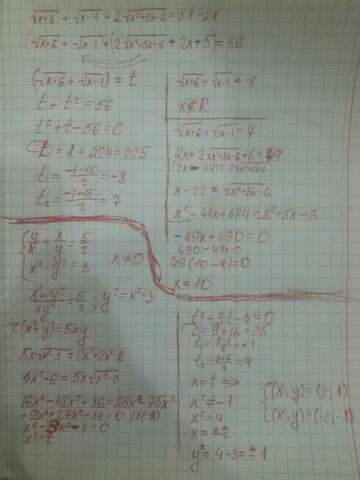 √x+6 + √x-1 + 2√x²+5x-6 = 51-2x
(√x+6 + √x-1) + (2√x²+5x-6 + 2x+5) = 56
(√x+6 + √x-1) = t
t + t² = 56
t² + t - 56 = 0
D = 1 + 224 = 225
t₁ = -1-15/2 = -8
t₂ = -1+15/2 = 7
√x+6 + √x-1 = -8
x∉R
√x+6 + √x-1 = 7
2x + 2√x²+5x-6 + 5 = 49
(2x - 44) = 2√x²+5x-6
x - 22 = √x²+5x-6
x² - 44x + 484 = x² + 5x - 6
-49x + 490 = 0
490 - 49x = 0
49(10-x) = 0
x = 10
{ y/x + x/y = 5/2
x² - y² = 3
x≠0
x²+y²/xy = 5/2 ; y² = x²-3
2(x²+y²) = 5xy
5x√x²-3 = 2x²+2x²-6
4x² - 6 = 5x√x²-3
x² = 2
t² - 3t - 4 = 0
D = 9 + 16 = 25
t₁ = 3-5/2 = -1
t₂ = 3+5/2 = 4
x² = t =>
x² ≠ -1
x² = 4
x = ±2
y² = 4-3 = ±1
{ (x;y) = (2;1)
(x;y) = (-2;-1)